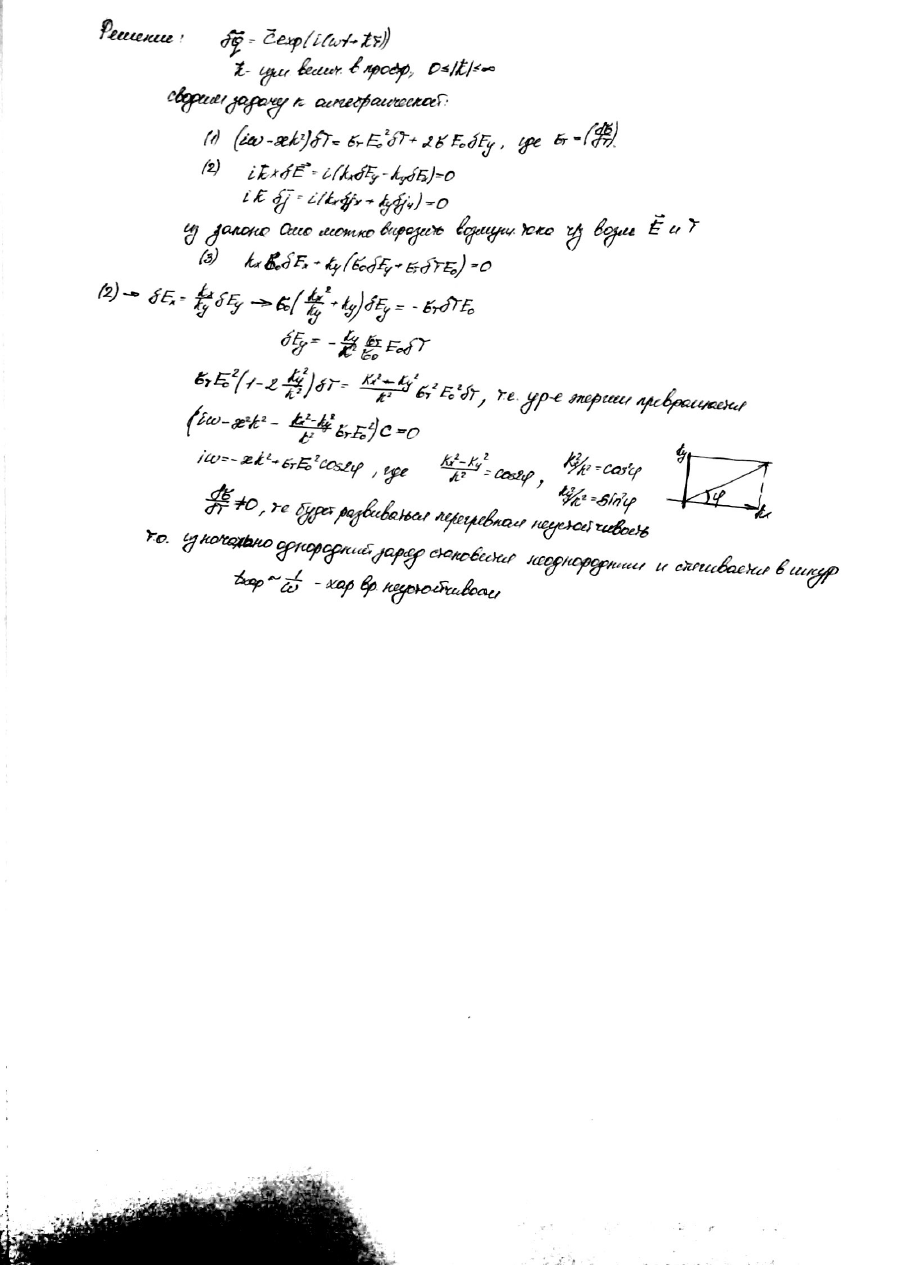 Решение: δq̄ = C̄ exp(i(ωt + k̄r̄))
k - изм велич. в простр, 0≤|k̄|≤∞
сводим задачу к алгебраической:
(1) (iω - æk²)δT = σ_T E₀²δT + 2σ E₀δE_y, где σ_T = (dσ/dT).
(2) i k̄ × δE⃗ = i(k_xδE_y - k_yδE_x) = 0
i k̄ δj̄ = i(k_xδj_x + k_yδj_y) = 0
из закона Ома можно выразить возмущ. тока чз возм E⃗ и T
(3) k_xσ₀δE_x + k_y(σ₀δE_y + σ_TδTE₀) = 0
(2) → δE_x = k_x/k_y δE_y → σ₀(k_x²/k_y + k_y)δE_y = -σ_TδTE₀
δE_y = - k_y/k² σ_T/σ₀ E₀δT
σ_T E₀²(1 - 2 k_y²/k²)δT = (k_x² - k_y²)/k² σ_T² E₀²δT, т.е. ур-е энергии превращается
(iω - æ²k² - (k_x² - k_y²)/k² σ_T E₀²)C = 0
iω = -æk² + σ_T E₀² cos2φ, где (k_x² - k_y²)/k² = cos2φ, k_x²/k² = cos²φ
k_y²/k² = sin²φ
k_y
φ
k_x
dσ/dT ≠ 0, те будет развиваться перегревная неустойчивость
т.о. изначально однородный заряд становится неоднородным и стягивается в шнур
t_хар ~ 1/ω - хар вр. неустойчивости